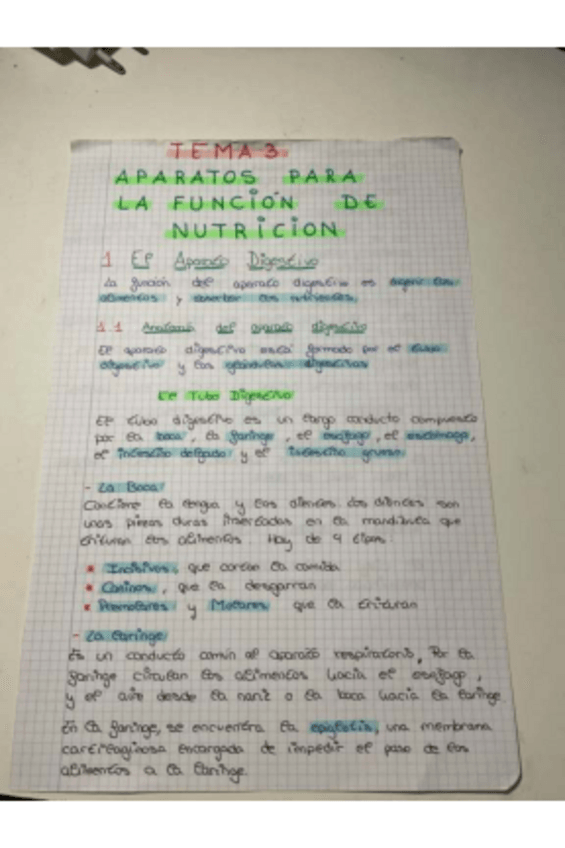 TEMA 3
APARATOS PARA
LA FUNCIÓN DE
NUTRICION
1 El Aparato Digestivo
La función del aparato digestivo es digerir los
alimentos y absorber los nutrientes.
1.1 Anatomía del aparato digestivo
El aparato digestivo está formado por el tubo
digestivo y las glándulas digestivas
El Tubo Digestivo
El tubo digestivo es un largo conducto compuesto
por la boca, la faringe, el esofago, el estómago,
el intestino delgado y el intestino grueso
- La Boca
Contiene la lengua y los dientes. Los dientes son
unas piezas duras insertadas en la mandíbula que
trituran los alimentos. Hay de 4 tipos:
Incisivos, que cortan la comida
Caninos, que la desgarran
Premolares y Molares que la trituran
- La Faringe
Es un conducto común al aparato respiratorio, Por la
faringe circulan los alimentos hacia el esofago,
y el aire desde la nariz o la boca hacia la laringe
En la faringe, se encuentra la epiglotis, una membrana
cartilaginosa encargada de impedir el paso de los
alimentos a la laringe.